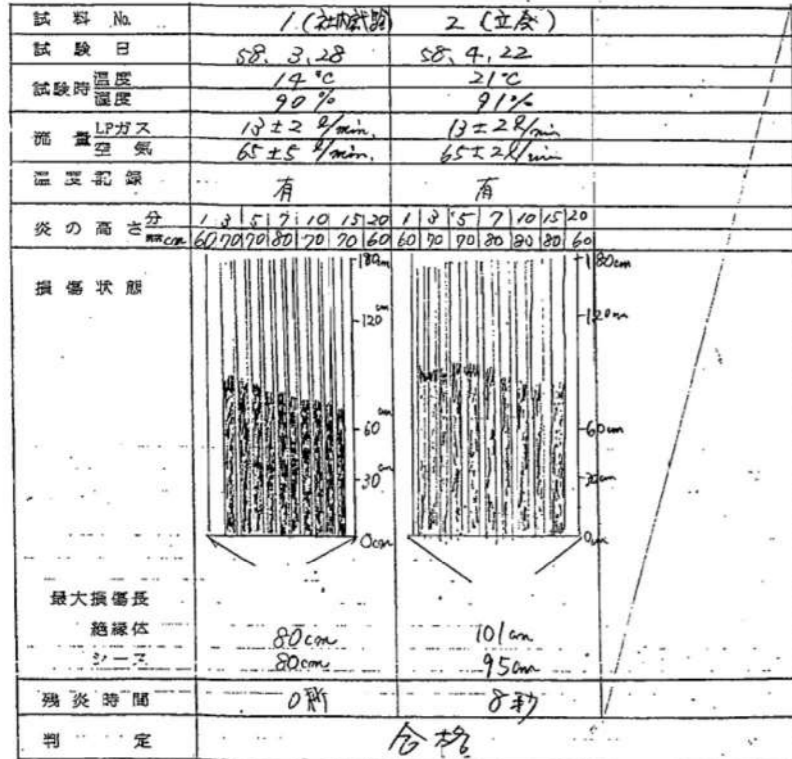 試料 No. 1 (社内試験) 2 (立会)
試験日 58. 3. 28 58. 4. 22
試験時 温度 14℃ 21℃
湿度 90% 91%
流量 LPガス 13±2 ℓ/min. 13±2 ℓ/min
空気 65±5 ℓ/min. 65±2 ℓ/min
温度記録 有 有
炎の高さ 分 1 3 5 7 10 15 20 1 3 5 7 10 15 20
cm 60 70 70 80 70 70 60 60 70 70 80 80 80 60
損傷状態
180cm 180cm
120cm 120cm
60cm 60cm
30cm 30cm
0cm 0cm
最大損傷長
絶縁体 80cm 101cm
シース 80cm 95cm
残炎時間 0秒 8秒
判定 合格